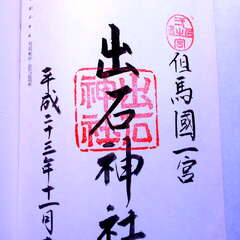 但馬國一宮
出石神社
出石神社
平成二十三年十一月